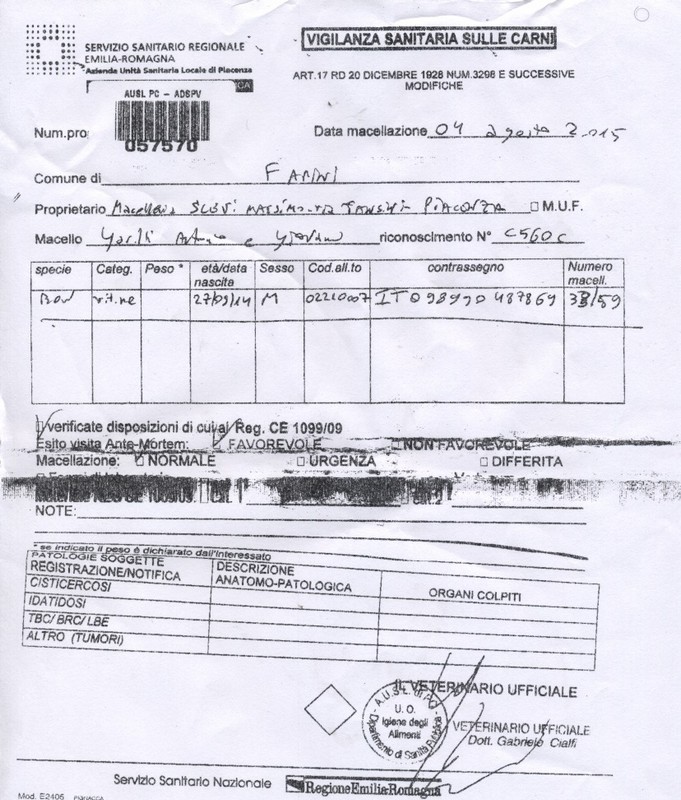 SERVIZIO SANITARIO REGIONALE
EMILIA-ROMAGNA
Azienda Unità Sanitaria Locale di Piacenza
VIGILANZA SANITARIA SULLE CARNI
ART.17 RD 20 DICEMBRE 1928 NUM.3298 E SUCCESSIVE
MODIFICHE
AUSL PC - ADSPV
CA
057570
Num.pro
Data macellazione 04 agosto 2015
Comune di FARINI
Proprietario Macelleria MASSIMO PIACENZA M.U.F.
Macello e riconoscimento N° C560C
specie Categ. Peso * età/data nascita Sesso Cod.all.to contrassegno Numero macell.
Bov 27/09/14 M IT098990487869
verificate disposizioni di cui al Reg. CE 1099/09
Esito visita Ante-Mortem: FAVOREVOLE NON FAVOREVOLE
Macellazione: NORMALE URGENZA DIFFERITA
NOTE:
* se indicato il peso è dichiarato dall'interessato
PATOLOGIE SOGGETTE
REGISTRAZIONE/NOTIFICA
DESCRIZIONE
ANATOMO-PATOLOGICA
ORGANI COLPITI
CISTICERCOSI
IDATIDOSI
TBC/ BRC/ LBE
ALTRO (TUMORI)
IL VETERINARIO UFFICIALE
A.U.S.L.
U. O.
Igiene degli
Alimenti
Dipartimento di Sanità Pubblica
VETERINARIO UFFICIALE
Dott. Gabriele Cialfi
Servizio Sanitario Nazionale
RegioneEmilia-Romagna
Mod. E2405